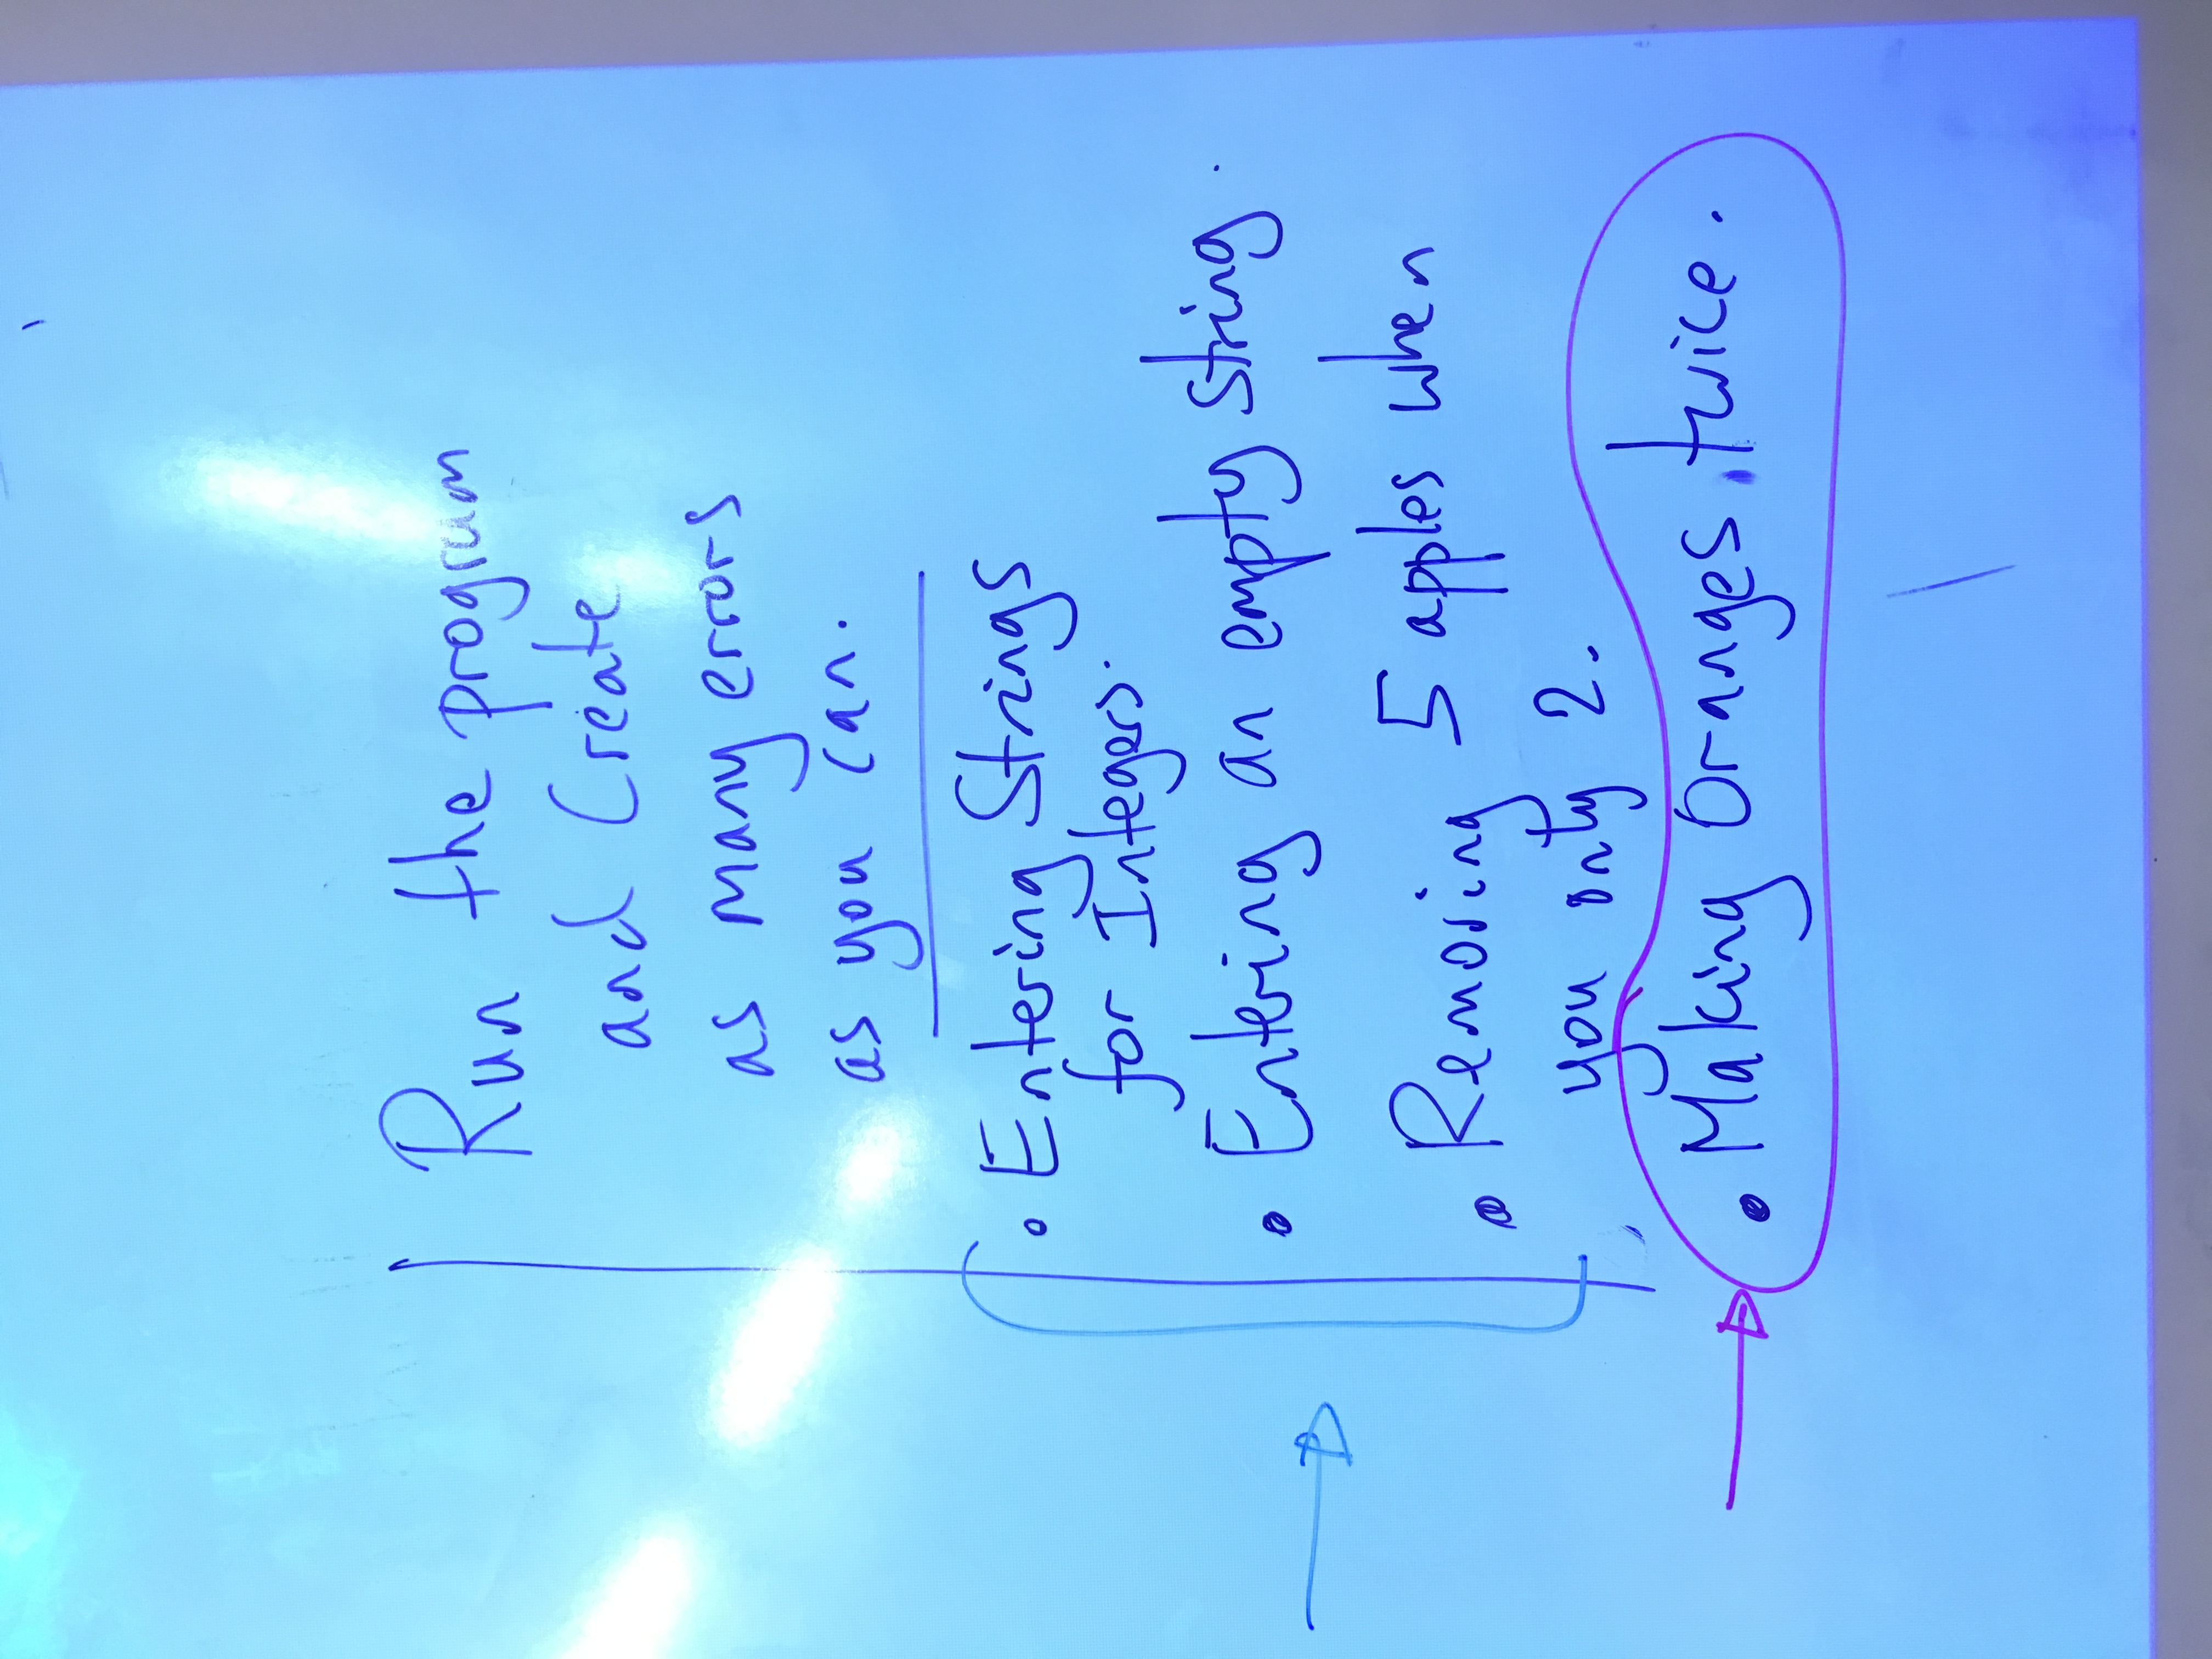 Run the program
and Create
as many errors
as you can.
• Entering Strings
for Integers.
• Entering an empty string.
• Removing 5 apples when
you only 2.
• Making Oranges twice.